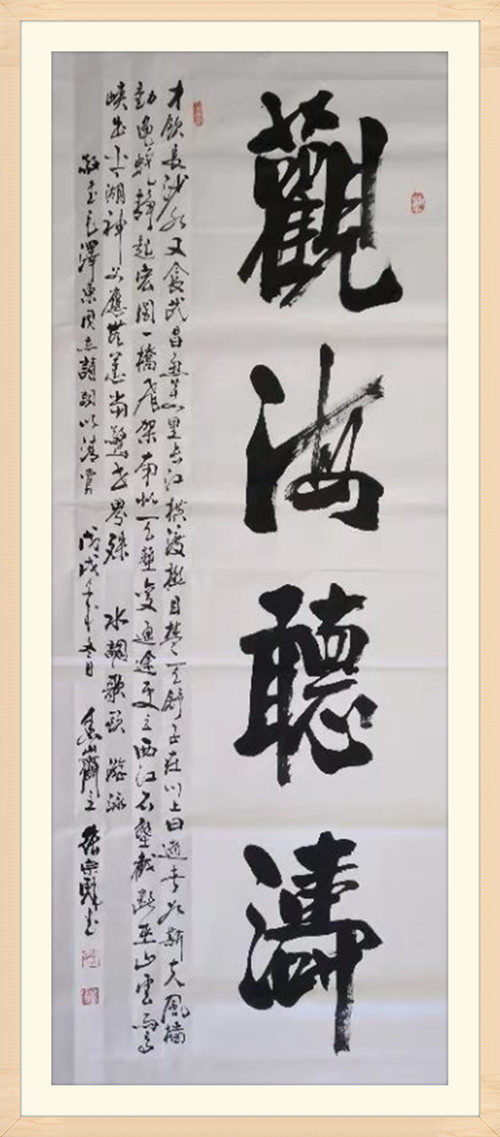 觀海聽濤
才飲長沙水又食武昌魚萬里長江橫渡極目楚天舒子在川上曰逝者如斯夫風檣
動龜蛇靜起宏圖一橋飛架南北天塹變通途更立西江石壁截斷巫山雲雨高
峽出平湖神女應無恙當驚世界殊 水調歌頭 游泳
敬書毛澤東同志詩詞以清賞 戊戌年冬日 山齋主 張宗書